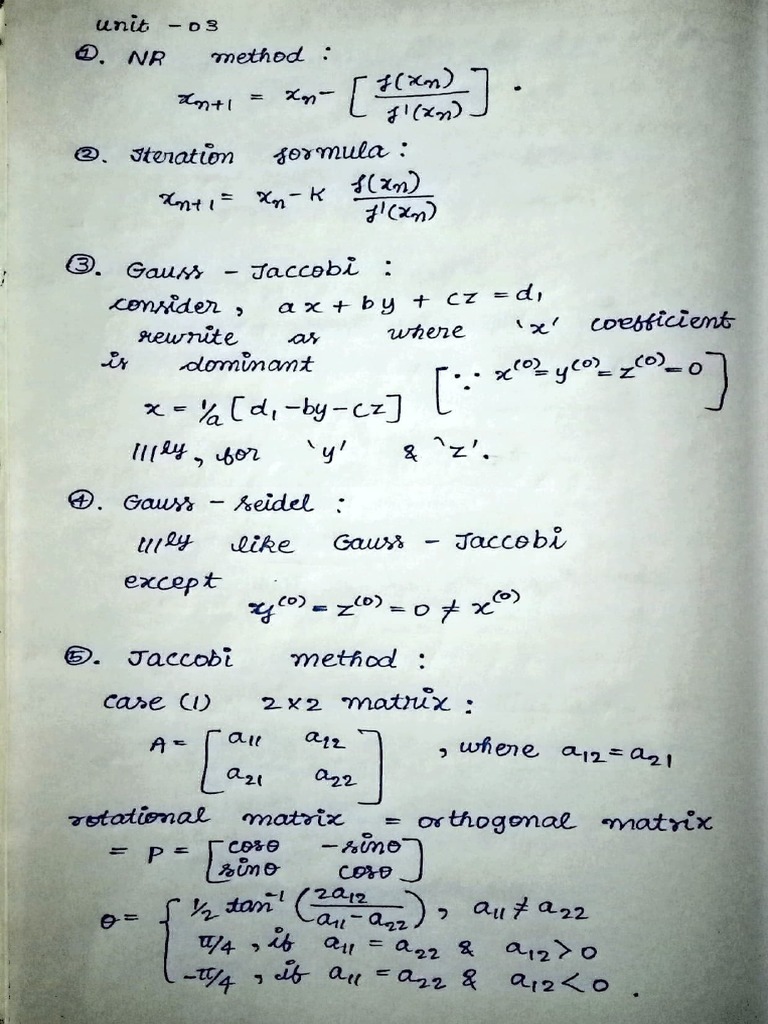 unit - 03
①. NR method :
xₙ₊₁ = xₙ - [ f(xₙ) / f'(xₙ) ] .
②. Iteration formula :
xₙ₊₁ = xₙ - K f(xₙ) / f'(xₙ)
③. Gauss - Jaccobi :
consider, ax + by + cz = d₁
rewrite as where 'x' coefficient
is dominant [∵ x⁽⁰⁾ = y⁽⁰⁾ = z⁽⁰⁾ = 0]
x = 1/a [d₁ - by - cz]
lllly, for 'y' & 'z'.
④. Gauss - seidel :
lllly like Gauss - Jaccobi
except
y⁽⁰⁾ = z⁽⁰⁾ = 0 ≠ x⁽⁰⁾
⑤. Jaccobi method :
case (1) 2×2 matrix :
A = [ a₁₁ a₁₂
a₂₁ a₂₂ ] , where a₁₂ = a₂₁
rotational matrix = orthogonal matrix
= P = [ cosθ -sinθ
sinθ cosθ ]
θ = { 1/2 tan⁻¹ ( 2a₁₂ / a₁₁ - a₂₂ ) , a₁₁ ≠ a₂₂
π/4 , if a₁₁ = a₂₂ & a₁₂ > 0
-π/4 , if a₁₁ = a₂₂ & a₁₂ < 0 .